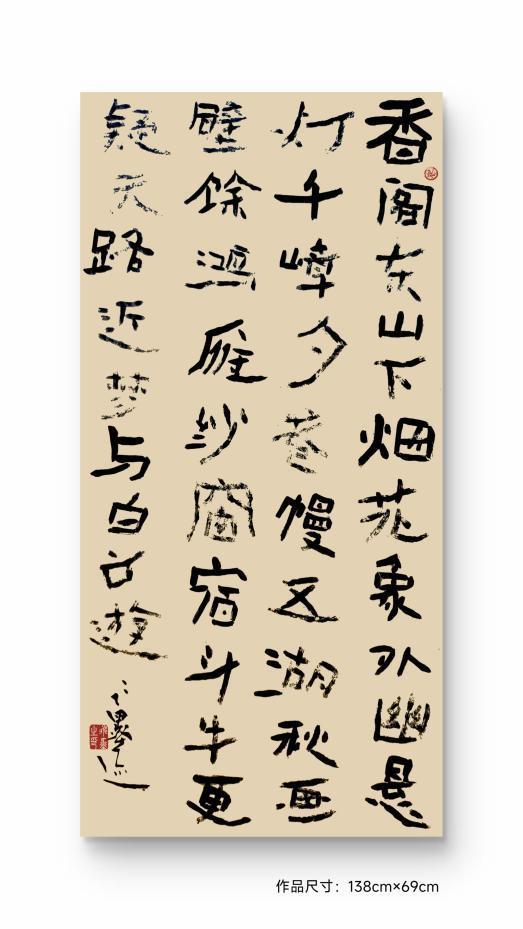 香閣东山下烟花象外幽悬
灯千嶂夕卷幔五湖秋画
壁馀鸿雁纱窗宿斗牛更
疑天路近梦与白云遊
作品尺寸：138cm×69cm